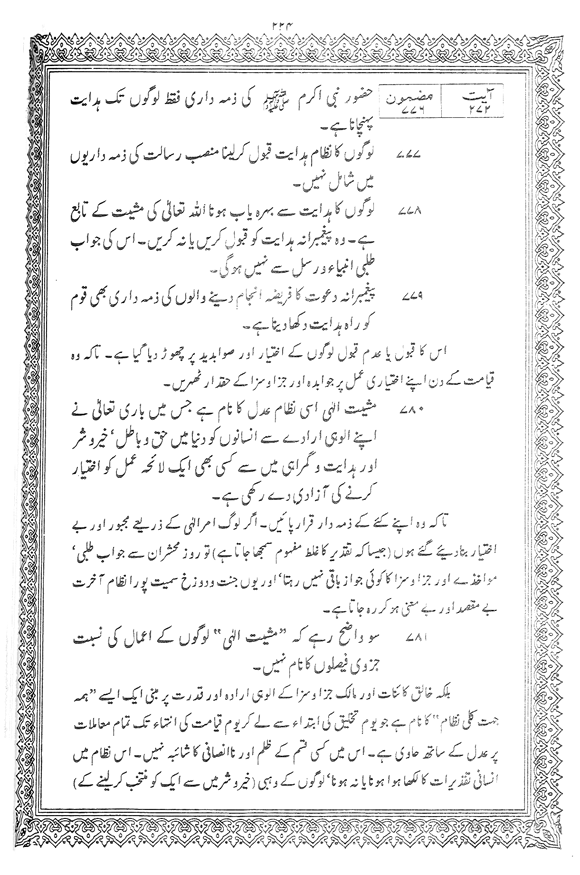 ۲۲۴
آیت
۲۷۲
مضمون
۷۷۶
حضور نبی اکرم ﷺ کی ذمہ داری فقط لوگوں تک ہدایت
پہنچانا ہے۔
۷۷۷ لوگوں کا نظام ہدایت قبول کرلینا منصب رسالت کی ذمہ داریوں
میں شامل نہیں۔
۷۷۸ لوگوں کا ہدایت سے بہرہ یاب ہونا اللہ تعالیٰ کی مشیت کے تابع
ہے۔ وہ پیغمبرانہ ہدایت کو قبول کریں یا نہ کریں۔ اس کی جواب
طلبی انبیاء و رسل سے نہیں ہوگی۔
۷۷۹ پیغمبرانہ دعوت کا فریضہ انجام دینے والوں کی ذمہ داری بھی قوم
کو راہ ہدایت دکھا دینا ہے۔
اس کا قبول یا عدم قبول لوگوں کے اختیار اور صوابدید پر چھوڑ دیا گیا ہے۔ تاکہ وہ
قیامت کے دن اپنے اختیاری عمل پر جوابدہ اور جزا و سزا کے حقدار ٹھہریں۔
۷۸۰ مشیت الٰہی اسی نظام عدل کا نام ہے جس میں باری تعالیٰ نے
اپنے الوہی ارادے سے انسانوں کو دنیا میں حق و باطل‘ خیر و شر
اور ہدایت و گمراہی میں سے کسی بھی ایک لائحہ عمل کو اختیار
کرنے کی آزادی دے رکھی ہے۔
تاکہ وہ اپنے کئے کے ذمہ دار قرار پائیں۔ اگر لوگ امر الٰہی کے ذریعے مجبور اور بے
اختیار بنا دیئے گئے ہوں (جیسا کہ تقدیر کا غلط مفہوم سمجھا جاتا ہے) تو روز محشر ان سے جواب طلبی‘
مواخذے اور جزا و سزا کا کوئی جواز باقی نہیں رہتا‘ اور یوں جنت و دوزخ سمیت پورا نظام آخرت
بے مقصد اور بے معنی ہو کر رہ جاتا ہے۔
۷۸۱ سو واضح رہے کہ ”مشیت الٰہی“ لوگوں کے اعمال کی نسبت
جزوی فیصلوں کا نام نہیں۔
بلکہ خالق کائنات اور مالک جزا و سزا کے الوہی ارادہ اور قدرت پر مبنی ایک ایسے ”ہمہ
جہت کلی نظام“ کا نام ہے جو یوم تخلیق کی ابتداء سے لے کر یوم قیامت کی انتہاء تک تمام معاملات
پر عدل کے ساتھ حاوی ہے۔ اس میں کسی قسم کے ظلم اور ناانصافی کا شائبہ نہیں۔ اس نظام میں
انسانی تقدیرات کا لکھا ہوا ہونا یا نہ ہونا‘ لوگوں کے وہبی (خیر و شر میں سے ایک کو منتخب کرلینے کے)